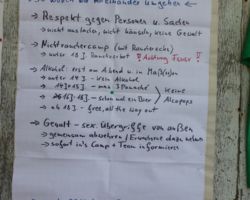 So wollen wir miteinander umgehen
→ Respekt gegen Personen u. Sachen
→ nicht auslachen, nicht hänseln, keine Gewalt
→ Nichtrauchercamp (mit Raucherecke)
→ unter 18 J. Rauchverbot ! Achtung Feuer !!
→ Alkohol: erst am Abend u. in Maß(s)en
→ unter 14 J. - kein Alkohol
→ 14J+15J. - max
→ 16J. - schon mal ein Bier
keine Alcopops
→ ab 18 J. - free, all the way out
→ Gewalt - sex. Übergriffe von außen
→ gemeinsam abwehren / Erwachsene dazu holen
→ sofort in's Camp + Team informieren